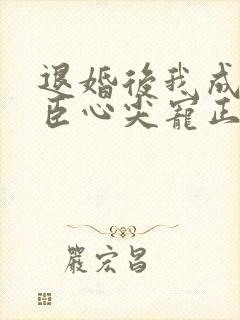 退婚後我成
臣心尖寵正
嚴宏昌